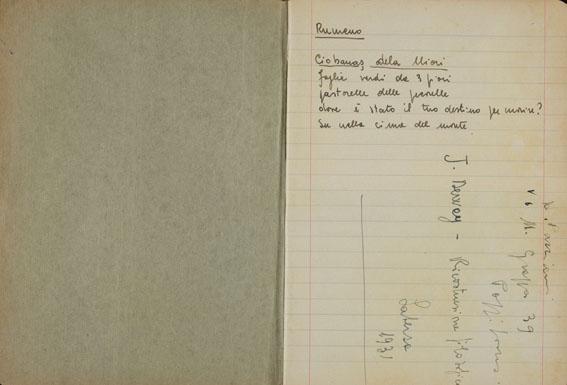 Rumeno
Ciobanaş dela Miori
foglie verdi da 3 fiori
pastorello delle pecorelle
dove è stato il tuo destino per morire?
Su nella cima del monte
J. Dewey - Ricostruzione filosofica
Laterza
1931
V. M. Grappa 39